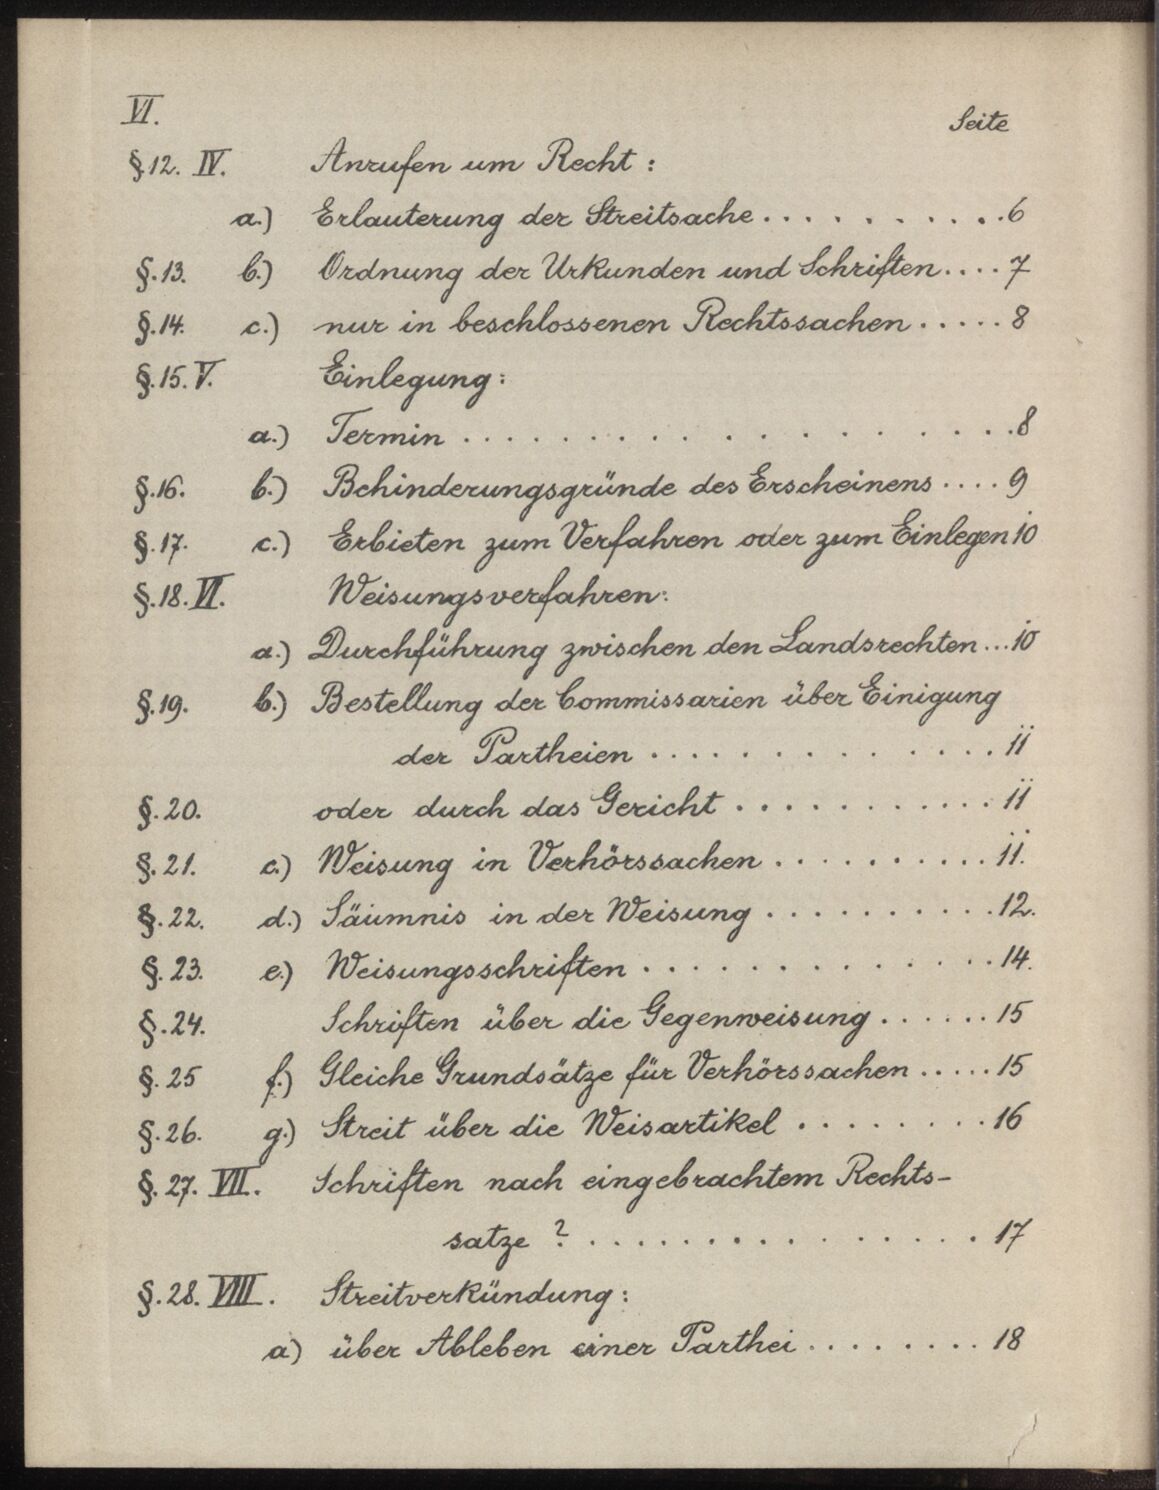 VI.
Seite
§.12. IV. Anrufen um Recht :
a.) Erlauterung der Streitsache . . . . . . . . . . . 6
§.13. b.) Ordnung der Urkunden und Schriften . . . . 7
§.14. c.) nur in beschlossenen Rechtssachen . . . . . 8
§.15. V. Einlegung :
a.) Termin . . . . . . . . . . . . . . . . . 8
§.16. b.) Behinderungsgründe des Erscheinens . . . . 9
§.17. c.) Erbieten zum Verfahren oder zum Einlegen 10
§.18. VI. Weisungsverfahren:
a.) Durchführung zwischen den Landsrechten ... 10
§.19. b.) Bestellung der Commissarien über Einigung
der Partheien . . . . . . . . . . . . . . 11
§.20. oder durch das Gericht . . . . . . . . . . . 11
§.21. c.) Weisung in Verhörssachen . . . . . . . . . . 11.
§.22. d.) Säumnis in der Weisung . . . . . . . . . . 12.
§.23. e.) Weisungsschriften . . . . . . . . . . . . . 14.
§.24. Schriften über die Gegenweisung . . . . . . 15
§.25 f.) Gleiche Grundsätze für Verhörssachen . . . . . 15
§.26. g.) Streit über die Weisartikel . . . . . . . . . 16
§.27. VII. Schriften nach eingebrachtem Rechts-
satze ? . . . . . . . . . . . . . . . 17
§.28. VIII. Streitverkündung :
a) über Ableben einer Parthei . . . . . . . . 18